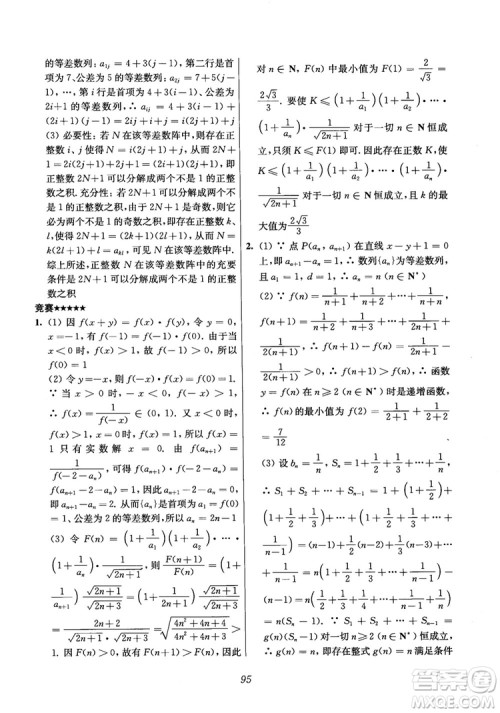 的等差数列：a₁ⱼ = 4 + 3(j − 1)，第二行是首
项为 7、公差为 5 的等差数列：a₂ⱼ = 7 + 5(j −
1)，…，第 i 行是首项为 4 + 3(i − 1)、公差为
2i + 1 的等差数列 ∴ aᵢⱼ = 4 + 3(i − 1) +
(2i + 1)(j − 1) = i(2j + 1) + j
(3) 必要性：若 N 在该等差数阵中，则存在
正整数 i、j 使得 N = i(2j + 1) + j，从而 2N +
1 = 2i(2j + 1) + 2j + 1 = (2i + 1)(2j + 1)，
即正整数 2N + 1 可以分解成两个不是 1 的
正整数之积. 充分性：若 2N + 1 可以分解成
两个不是 1 的正整数之积，由于 2N + 1 是奇
数，则它必为两个不是 1 的奇数之积，即存在
正整数 k、l，使得 2N + 1 = (2k + 1)(2l +
1)，∴ N = k(2l + 1) + l = aₖₗ，可见 N 在该
等差数阵中.
综上所述，正整数 N 在该等差数阵中的充要
条件是 2N + 1 可以分解成两个不是 1 的正
整数之积
竞赛★★★★★
1. (1) 因 f(x + y) = f(x) · f(y)，令 y = 0，
x = −1，有 f(−1) = f(−1) · f(0). 由于当
x < 0 时，f(x) > 1，故 f(−1) > 1. 所以
f(0) = 1
(2) 令 y = −x，则 f(x) · f(−x) = f(0) = 1.
∵ 当 x > 0 时，−x < 0，f(−x) > 1，
∴ f(x) = 1/f(−x) ∈ (0, 1). ∵ 当 x < 0 时，
f(x) > 1，故对于 x ∈ R，f(x) > 0. ∴ f(x) =
1 只有实数解 x = 0. ∵ f(aₙ₊₁) =
1/f(−2 − aₙ)，可得 f(aₙ₊₁) · f(−2 − aₙ) = 1，
f(aₙ₊₁ − 2 − aₙ) = 1，aₙ₊₁ − 2 − aₙ = 0. 因此
aₙ₊₁ − aₙ = 2. 从而数列{aₙ}是首项为 a₁ = f(0) =
1、公差为 2 的等差数列. 所以 aₙ = 2n − 1
(3) 令 F(n) = (1 + 1/a₁) · … ·
(1 + 1/aₙ) · 1/√(2n + 1)，则 F(n + 1)/F(n) = (1 +
1/aₙ₊₁) · √(2n + 1)/√(2n + 3) = (2n + 2)/(2n + 1) · √(2n + 1)/√(2n + 3)
= (2n + 2)/(√(2n + 1) · √(2n + 3)) = √((4n² + 8n + 4)/(4n² + 8n + 3)) >
1. 因 F(n) > 0，故 F(n + 1) > F(n). 所以
对 n ∈ N，F(n) 中最小值为 F(1) = 2/√3 =
2√3/3. 要使 K ≤ (1 + 1/a₁)(1 + 1/a₂) · … ·
(1 + 1/aₙ) · 1/√(2n + 1) 对于一切 n ∈ N 恒成
立，只需 K ≤ F(1) = 2√3/3. ∴ 使 K ≤
(1 + 1/a₁)(1 + 1/a₂) · … · (1 + 1/aₙ) ·
1/√(2n + 1) 对于一切 n ∈ N 恒成立，且 k 的最
大值为 2√3/3
2. (1) ∵ 点 P(aₙ, aₙ₊₁) 在直线 x − y + 1 = 0
上，∴ aₙ₊₁ − aₙ = 1，∴ 数列{aₙ}为等差数
列，且 a₁ = 1，d = 1，∴ aₙ = n(n ∈ N*)
(2) ∵ f(n) = 1/(n + 1) + 1/(n + 2) + … + 1/2n，
∴ f(n + 1) = 1/(n + 2) + 1/(n + 3) + … + 1/2n +
1/(2n + 1) + 1/(2n + 2)，∴ f(n + 1) − f(n) =
1/(2n + 1) + 1/(2n + 2) − 1/(n + 1) = 1/(2n + 1) −
1/(2n + 2) > 0，∴ f(n + 1) > f(n)，∴ 函数
f(n) 在 n ≥ 2(n ∈ N*) 时是递增函数，
∴ f(n) 的最小值为 f(2) = 1/3 + 1/4 =
7/12
(3) 设 bₙ = 1/n，Sₙ = 1 + 1/2 + … + 1/n，
∴ S₁ + S₂ + … + Sₙ₋₁ = 1 + (1 + 1/2) +
(1 + 1/2 + 1/3) + … + (1 + 1/2 + … +
1/(n − 1)) = (n − 1) + (n − 2) · 1/2 + … + 1 ·
1/(n − 1) = n(1 + 1/2 + 1/3 + … + 1/(n − 1)) −
(n − 1) = n(1 + 1/2 + 1/3 + … + 1/(n − 1) +
1/n) − n = nSₙ − n，∴ S₁ + S₂ + … + Sₙ₋₁ =
(Sₙ − 1) · n 对一切 n ≥ 2(n ∈ N*) 恒成立，
∴ g(n) = n，即存在整式 g(n) = n 满足条件
95